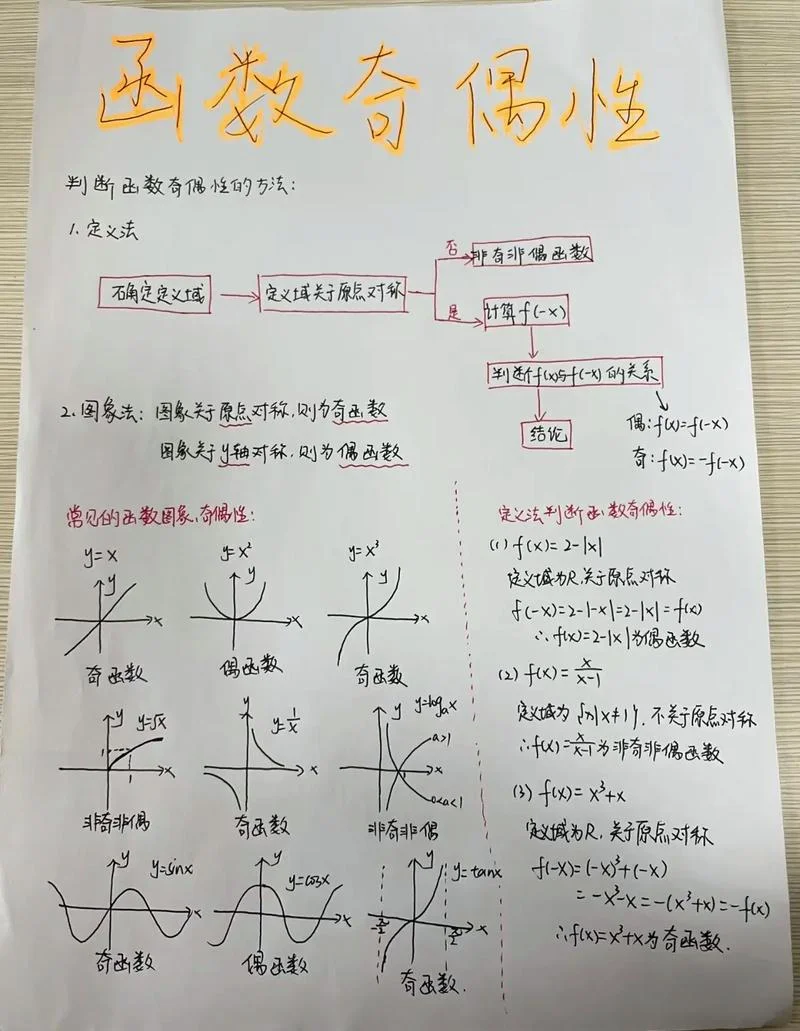 函数奇偶性
判断函数奇偶性的方法:
1.定义法
确定定义域
定义域关于原点对称
否
非奇非偶函数
是
计算f(-x)
判断f(x)与f(-x)的关系
偶:f(x)=f(-x)
奇:f(x)=-f(-x)
结论
2.图象法:图象关于原点对称,则为奇函数
图象关于y轴对称,则为偶函数
常见的函数图象、奇偶性:
y=x
y
x
奇函数
y=x²
y
x
偶函数
y=x³
y
x
奇函数
y
y=√x
x
非奇非偶
y
y=1/x
x
奇函数
y
y=logₐx
a>1
x
0<a<1
非奇非偶
y
y=sinx
x
奇函数
y
y=cosx
x
偶函数
y
y=tanx
-π/2
π/2
x
奇函数.
定义法判断函数奇偶性:
(1) f(x)=2-|x|
定义域为R,关于原点对称
f(-x)=2-|-x|=2-|x|=f(x)
∴f(x)=2-|x|为偶函数
(2) f(x)=x/(x-1)
定义域为{x|x≠1},不关于原点对称
∴f(x)=x/(x-1)为非奇非偶函数
(3) f(x)=x³+x
定义域为R,关于原点对称
f(-x)=(-x)³+(-x)
=-x³-x=-(x³+x)=-f(x)
∴f(x)=x³+x为奇函数.